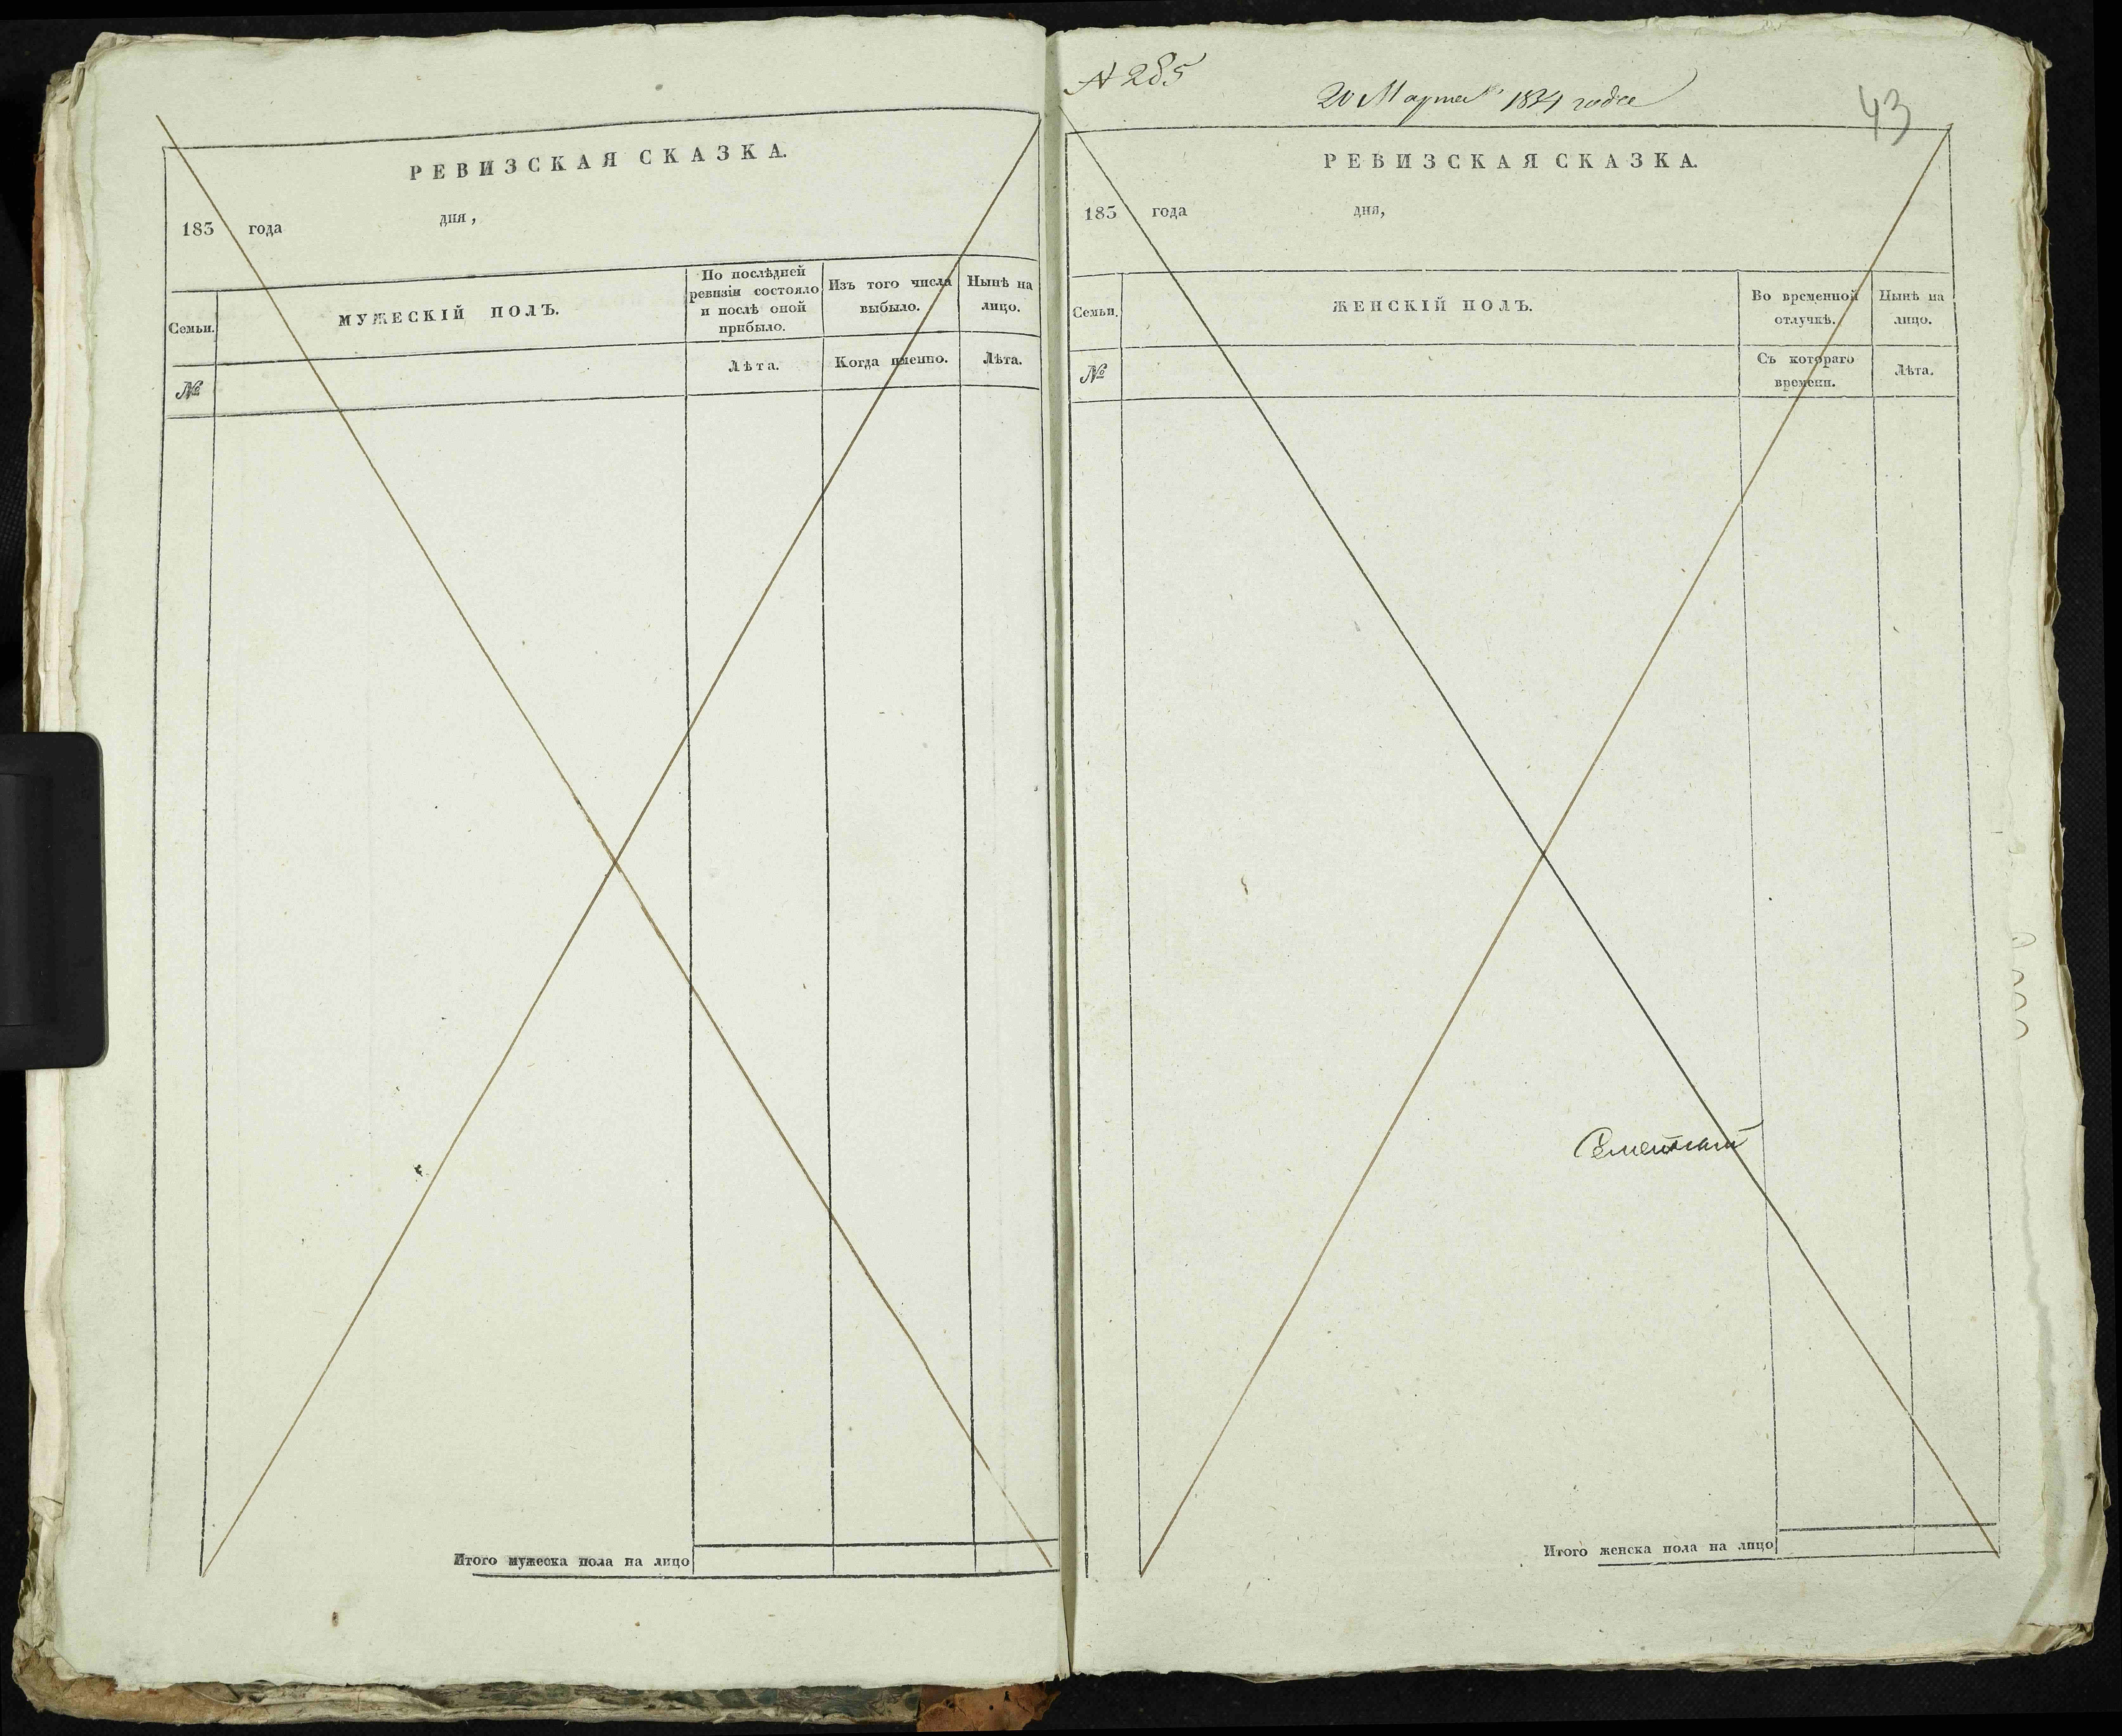 РЕВИЗСКАЯ СКАЗКА.
183 года дня,
Семьи.
МУЖЕСКІЙ ПОЛЪ.
По послѣдней ревизіи состояло и послѣ оной прибыло.
Изъ того числа выбыло.
Нынѣ на лицо.
№
Лѣта.
Когда именно.
Лѣта.
Итого мужеска пола на лицо
№ 285
20 Марта 1834 года
43
РЕВИЗСКАЯ СКАЗКА.
183 года дня,
Семьи.
ЖЕНСКІЙ ПОЛЪ.
Во временной отлучкѣ.
Нынѣ на лицо.
№
Съ котораго времени.
Лѣта.
Итого женска пола на лицо